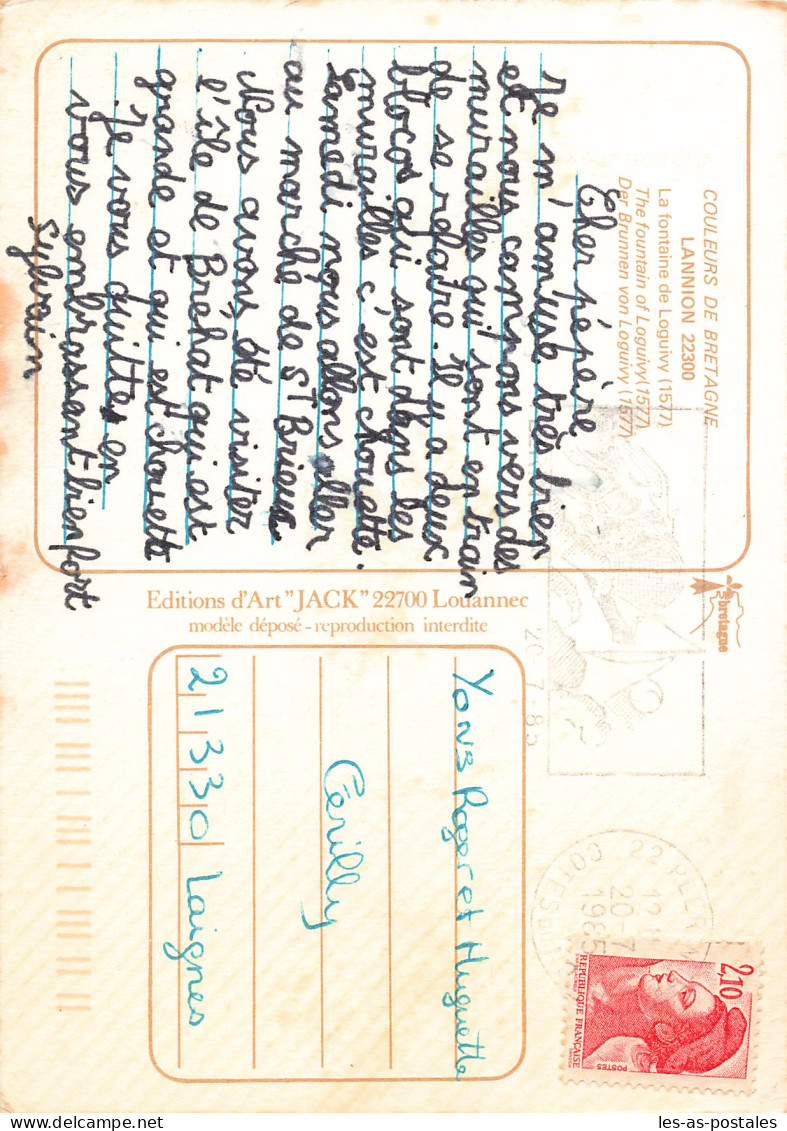 COULEURS DE BRETAGNE
LANNION 22300
La fontaine de Loguivy (1577)
The fountain of Loguivy (1577)
Der Brunnen von Loguivy (1577)
Cher pépère
Je m'amuse très bien
et nous campons vers des
murailles qui sont en train
de se refaire. Il y a deux
blocos qui sont dans les
murailles c'est chouette.
Samedi nous allons aller
au marché de St Brieuc
Nous avons été visiter
l'île de Bréhat qui est
grande et qui est chouette
Je vous quittes en
vous embrassent bien fort
Sylvain
Editions d'Art "JACK" 22700 Louannec
modèle déposé - reproduction interdite
bretagne
20.7.85
22 PLERIN
20-7
1985
COTES DU
2,10
REPUBLIQUE FRANÇAISE
POSTES
Roger et Huguette
Cérilly
21330 Laignes
les-as-postales.com